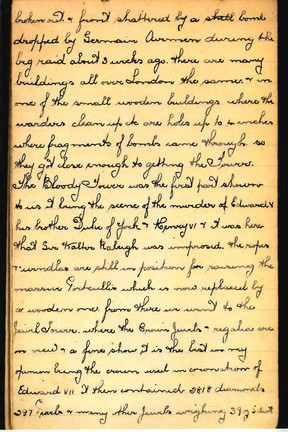 broken rd & front shattered by a shell bomb
dropped by Germain Airmen during the
big raid about 3 weeks ago. there are many
buildings all over London the same. & in
one of the small wooden buildings where the
warders clean up etc are holes up to 4 inches
where fragments of bombs came through so
they got close enough to getting the Tower.
The Bloody Tower was the first part shown
to us it being the scene of the murder of Edward V
his brother Duke of York & Henry VI & it was here
that Sir Walter Raleigh was imprisond. the ropes
& windlas are still in position for raising the
massive Portcullis which is now replaced by
a wooden one. from there we went to the
Jewel Tower. where the Crown Jewels & regalia are
on view & a fine show it is the best in my
opinion being the crown used in coronation of
Edward VII it then contained 2818 diamonds
297 Pearls & many other Jewels weighing 39